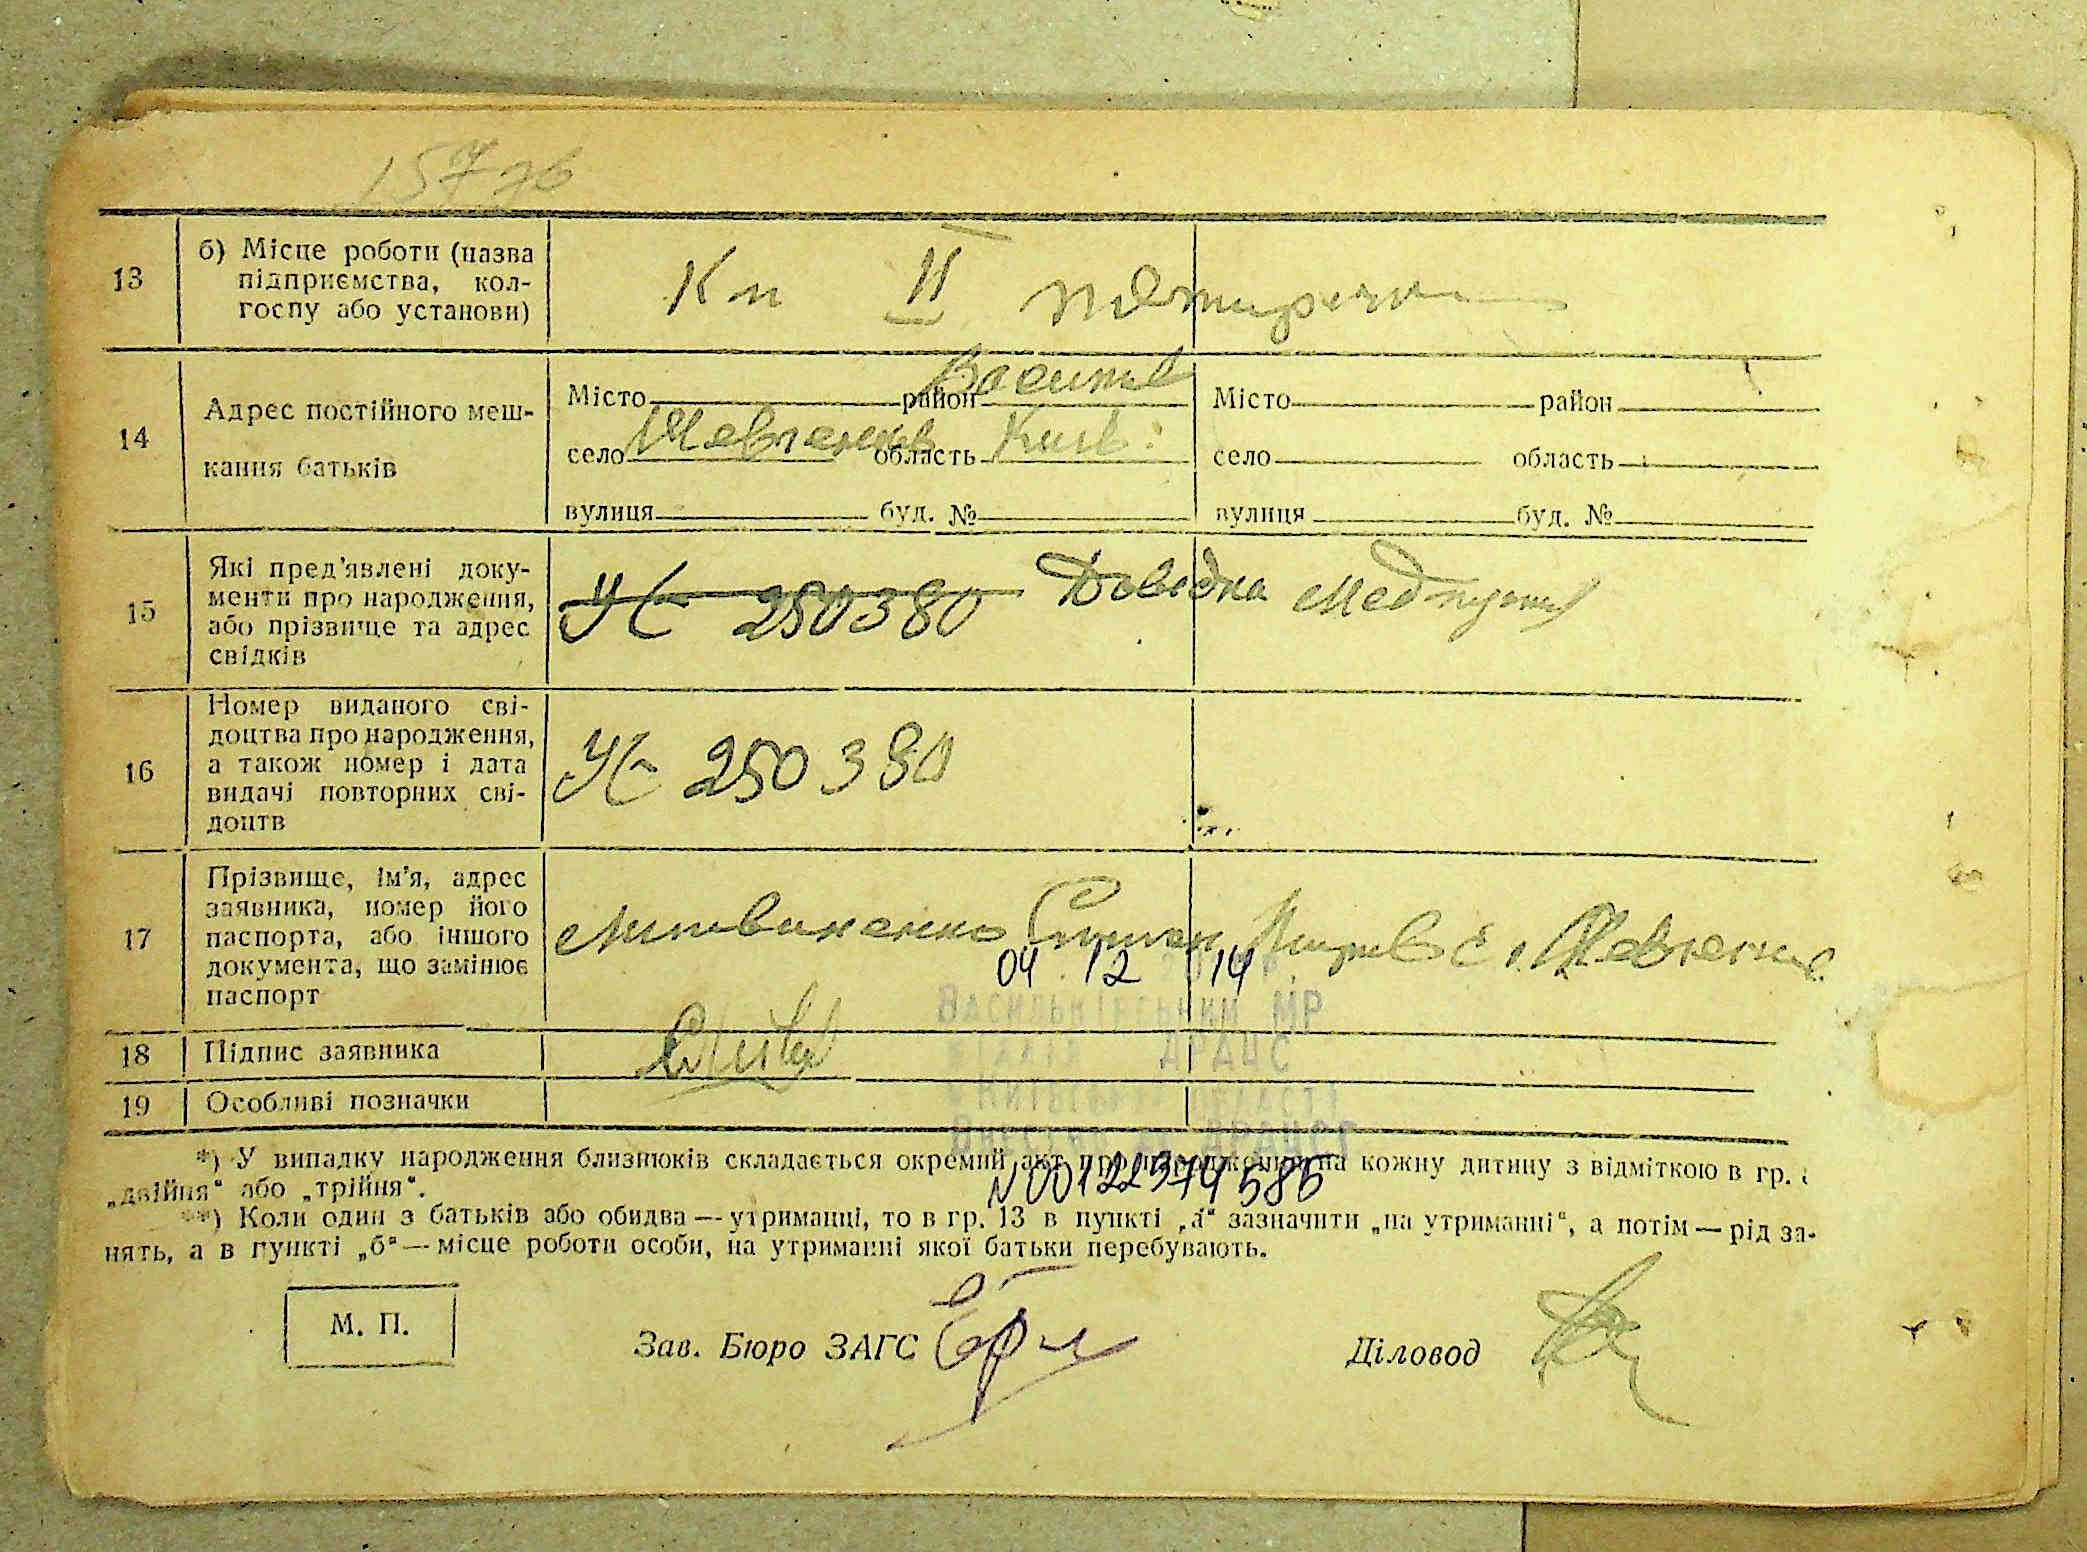 157 зв
13 б) Місце роботи (назва
підприємства, кол-
госпу або установи)
Кп II п'ятирічки
14 Адрес постійного меш-
кання батьків
Місто район Васильк Місто район
село Шевченків область Київ: село область
вулиця буд. № вулиця буд. №
15 Які пред'явлені доку-
менти про народження,
або прізвище та адрес
свідків
250380 Довідка Медпункт
16 Номер виданого сві-
доцтва про народження,
а також номер і дата
видачі повторних сві-
доцтв
250380
17 Прізвище, ім'я, адрес
заявника, номер його
паспорта, або іншого
документа, що замінює
паспорт
Литвиненко с. Шевченкив
04 12 14
Васильківський МР
18 Підпис заявника
філія ДРАЦС
Київській області
19 Особливі позначки
Внесено до ДРАЦСГ
*) У випадку народження близнюків складається окремий акт про народження на кожну дитину з відміткою в гр.
„двійня“ або „трійня“.
N 00122374586
**) Коли один з батьків або обидва — утриманці, то в гр. 13 в пункті „а“ зазначити „на утриманні“, а потім — рід за-
нять, а в пункті „б“ — місце роботи особи, на утриманні якої батьки перебувають.
М. П.
Зав. Бюро ЗАГС
Діловод